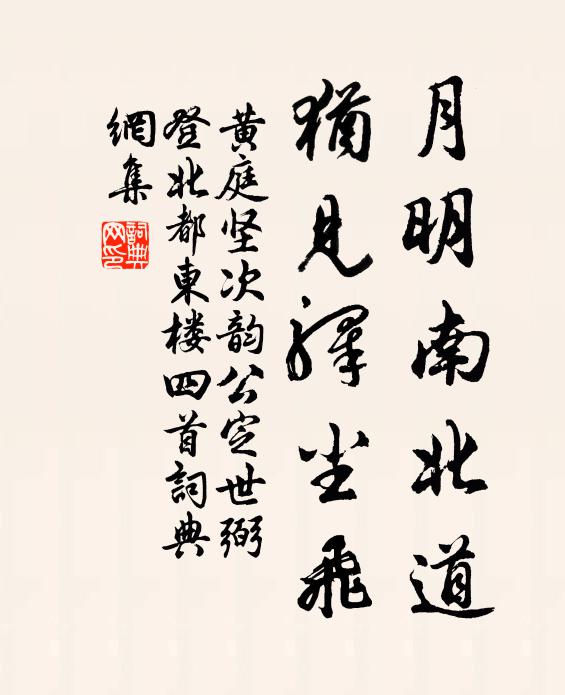 月明南北道
猶見驛尘飛
黄庭坚次韵公定世弼
登北都東楼四首詞典
網集
詞典
网印